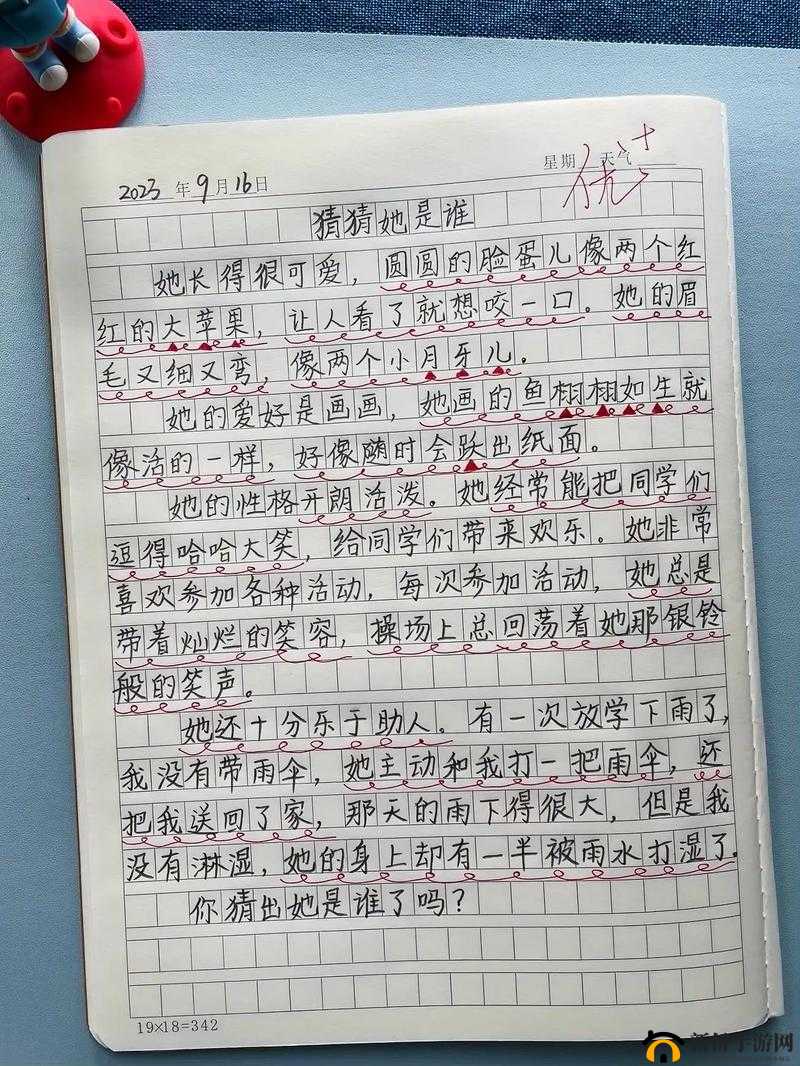 2023年9月16日 星期 天气
优+
猜猜她是谁
她长得很可爱，圆圆的脸蛋儿像两个红
红的大苹果，让人看了就想咬一口。她的眉
毛又细又弯，像两个小月牙儿。
她的爱好是画画，她画的鱼栩栩如生就
像活的一样，好像随时会跃出纸面。
她的性格开朗活泼。她经常能把同学们
逗得哈哈大笑，给同学们带来欢乐。她非常
喜欢参加各种活动，每次参加活动，她总是
带着灿烂的笑容，操场上总回荡着她那银铃
般的笑声。
她还十分乐于助人。有一次放学下雨了，
我没有带雨伞，她主动和我打一把雨伞，还
把我送回了家，那天的雨下得很大，但是我
没有淋湿，她的身上却有一半被雨水打湿了。
你猜出她是谁了吗？
19×18=342